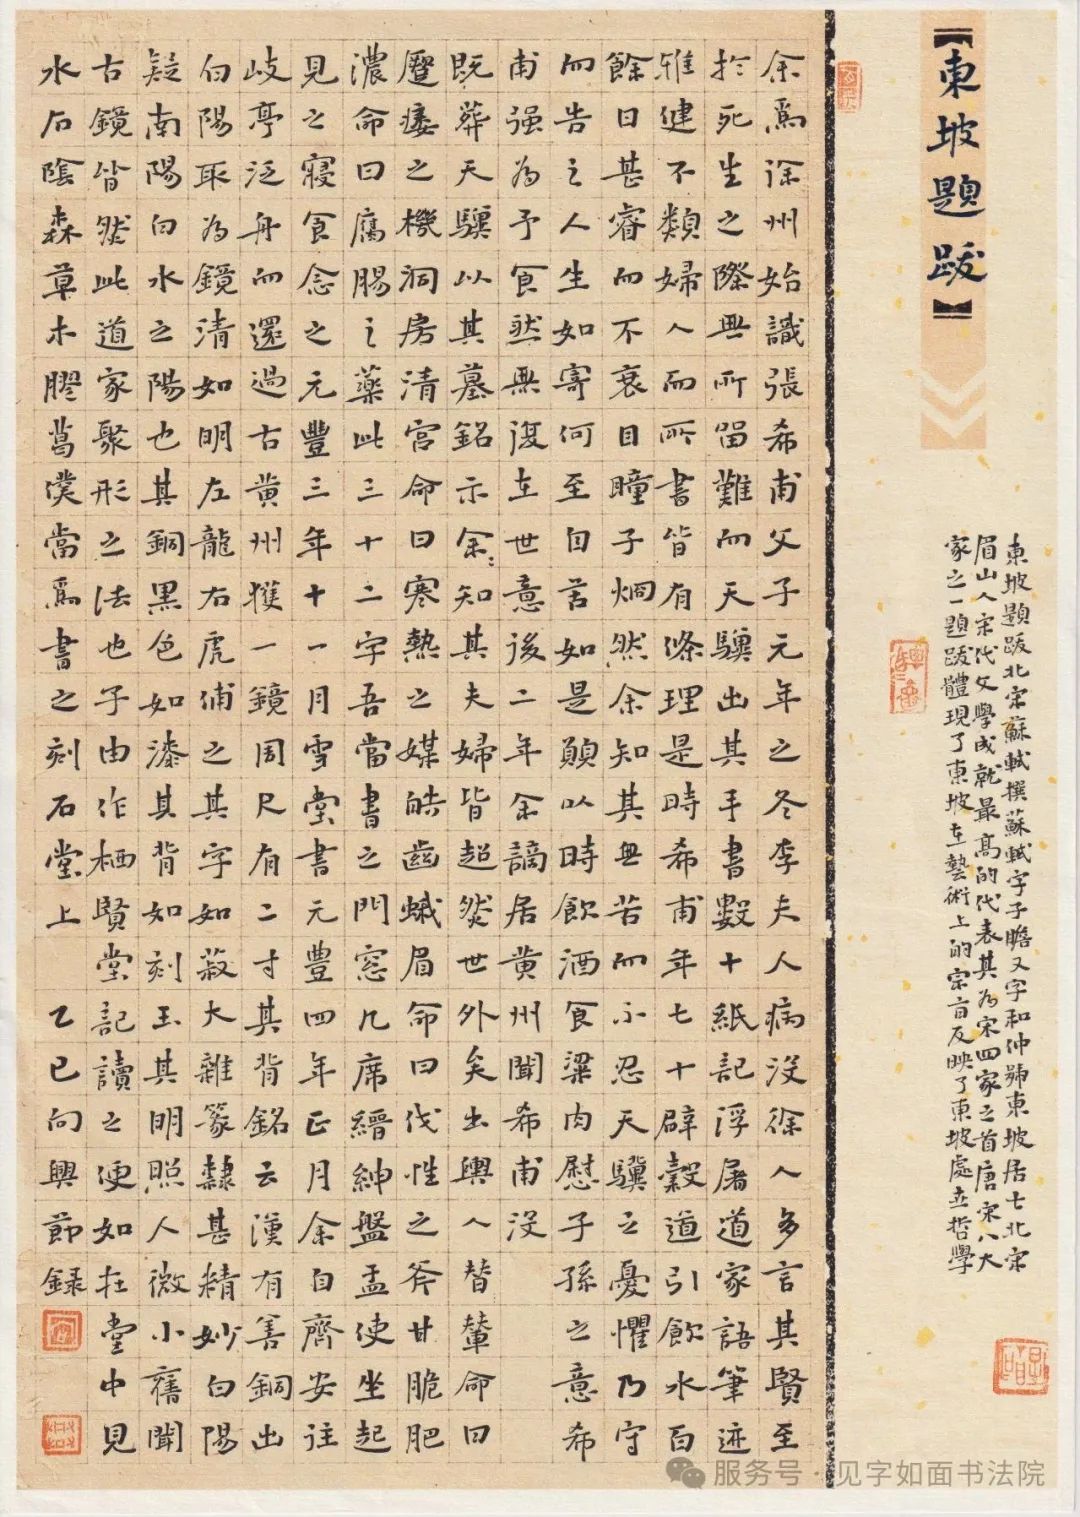 【東坡題跋】
東坡題跋北宋蘇軾撰蘇軾字子瞻又字和仲號東坡居士北宋
眉山人宋代文學成就最高的代表其为宋四家之首唐宋八大
家之一題跋體現了東坡在藝術上的宗旨反映了東坡處立哲學
余爲徐州始識張希甫父子元年之冬李夫人病没徐人多言其賢至
於死生之際無所留難而天驥出其手書數十紙記浮屠道家語筆迹
雅健不類婦人而所書皆有條理是時希甫年七十辟穀道引飲水百
餘日甚睿而不衰目瞳子炯然余知其無苦而不忍天驥之憂懼乃守
而告之人生如寄何至自言如是願以時飲酒食粱肉慰子孫之意希
甫强为予食然無復在世意後二年余謫居黄州聞希甫没
既葬天驥以其墓銘示余知其夫婦皆超然世外矣出輿入替輦命曰
蹷痿之機洞房清宫命曰寒熱之媒皓齒蛾眉命曰伐性之斧甘脆肥
濃命曰腐腸之藥此三十二字吾當書之門窓几席縉紳盤盂使坐起
見之寢食念之元豐三年十一月雪堂書元豊四年正月余自齊安往
岐亭泛舟而還過古黄州獲一鏡周尺有二寸其背銘云漢有善銅出
白陽取为鏡清如明左龍右虎俌之其字如菽大雜篆隸甚精妙白陽
疑南陽白水之陽也其銅黑色如漆其背如刻玉其明照人微小舊聞
古鏡皆然此道家聚形之法也子由作栖賢堂記讀之便如在堂中見
水石陰森草木膠葛僕當爲書之刻石堂上 乙巳向興節録
服务号·见字如面书法院